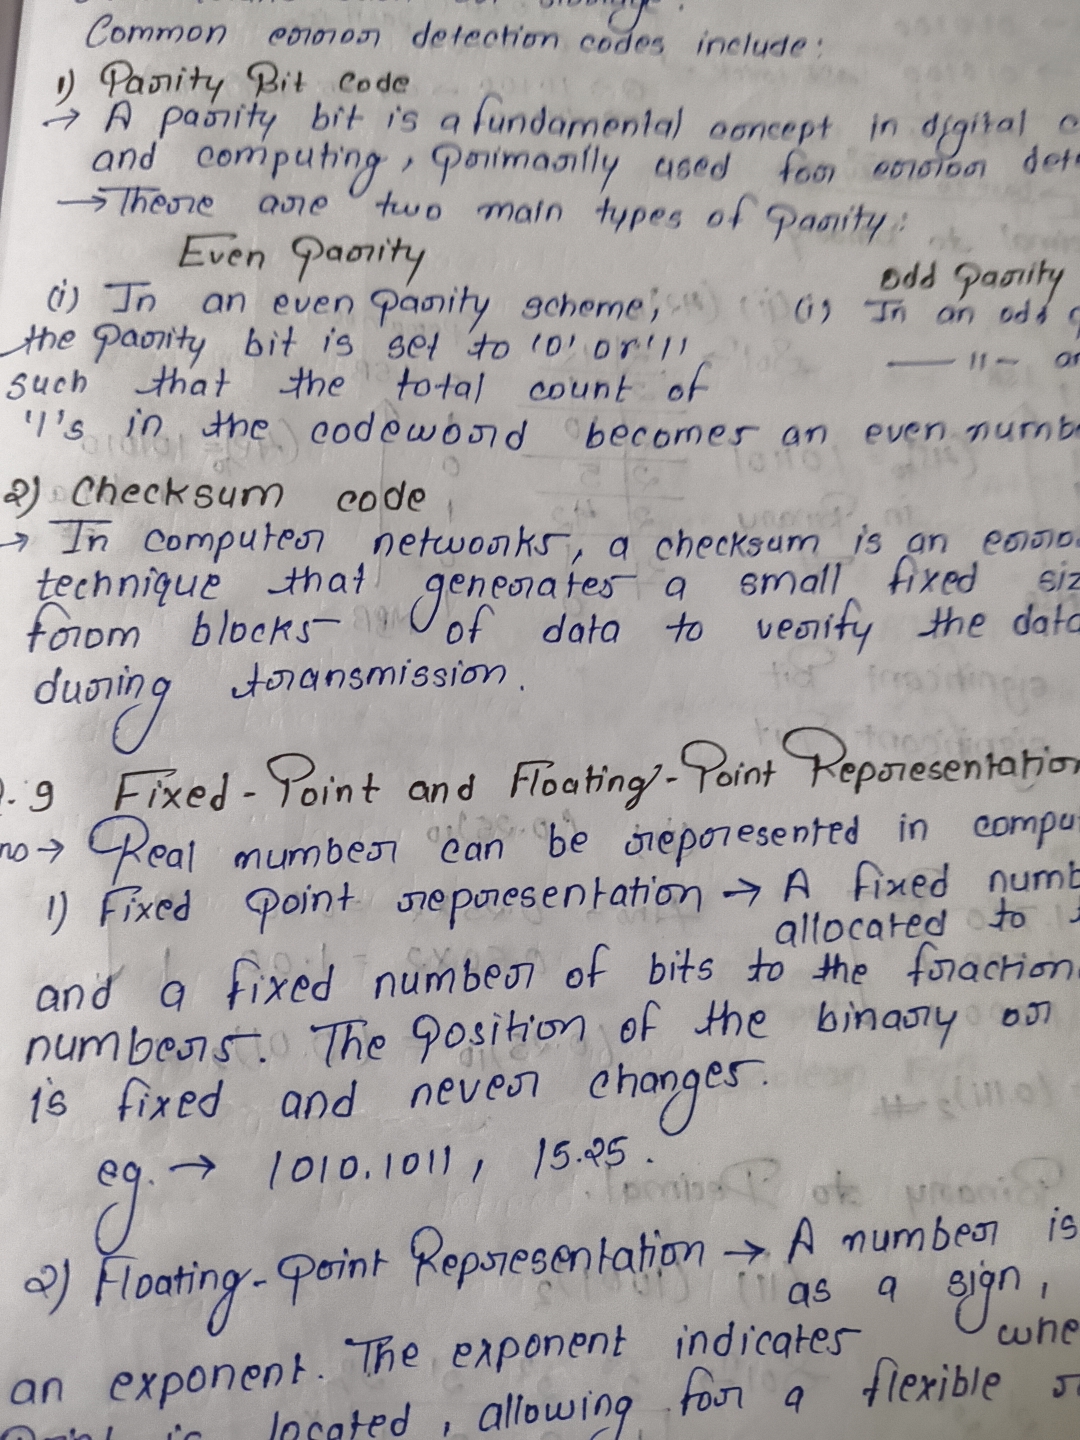 Common error detection codes include:
1) Parity Bit Code
→ A parity bit is a fundamental concept in digital
and computing, primarily used for error
→ There are two main types of Parity:
Even Parity
Odd Parity
(i) In an even parity scheme;
(i) In an odd
the parity bit is set to '0' or '1'
— 11 —
such that the total count of
'1's in the codeword becomes an even
2) Checksum code
→ In computer networks, a checksum is an
technique that generates a small fixed
from blocks of data to verify the data
during transmission.
9 Fixed-Point and Floating-Point Representation
→ Real number can be represented in
1) Fixed point representation → A fixed
allocated to
and a fixed number of bits to the
numbers. The position of the binary or
is fixed and never changes.
eg. → 1010.1011, 15.25.
2) Floating-Point Representation → A number is
as a sign,
an exponent. The exponent indicates
located, allowing for a flexible